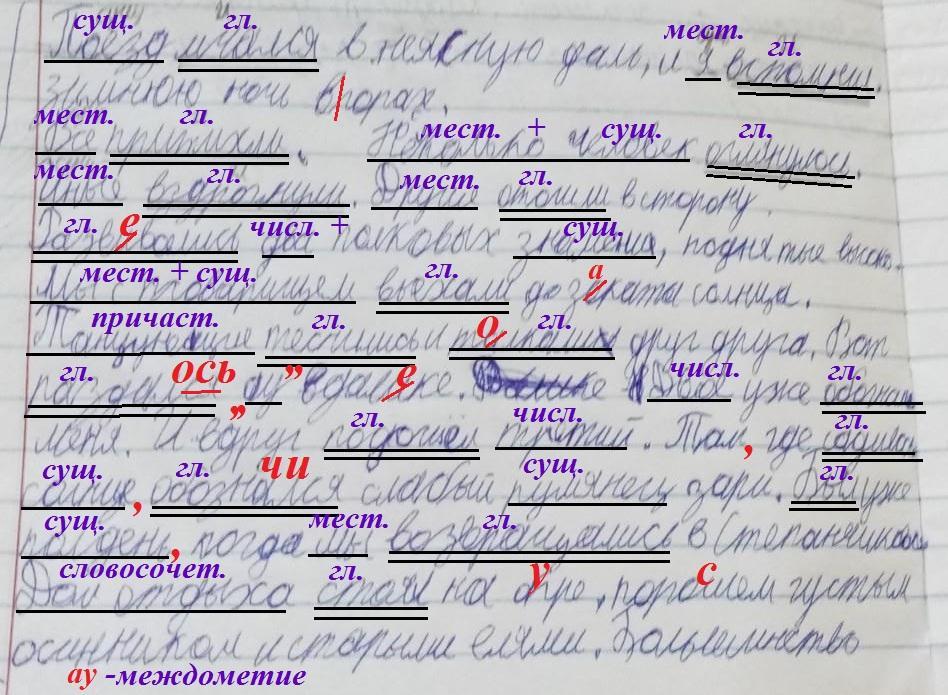 сущ. гл. мест. гл.
Поезд мчался в неясную даль, и я вспомнил
зимнюю ночь в горах.
мест. гл. мест. + сущ. гл.
Все притихли. Несколько человек оглянулось.
мест. гл. мест. гл.
Иные вздрогнули. Другие отошли в сторону.
гл. е числ. + сущ.
Развивались два полковых знамения, поднятые высоко.
мест. + сущ. гл. а
Мы с товарищем выехали до заката солнца.
причаст. гл. о гл.
Танцующие теснились и толкали друг друга. Вот
гл. ось „ е числ. гл.
ау вдалеке. Двое уже обогнали
„ гл. числ. гл.
меня. И вдруг подошёл третий. Там, где садилось
сущ. гл. чи сущ. гл.
солнце, обознался слабый румянец зари. Был уже
сущ. мест. гл.
полдень, когда мы возвращались в Степанчиково
словосочет. гл. у с
Дом отдыха стоял на, поросшем густым
осинником и старыми елями. Большинство
ау -междометие